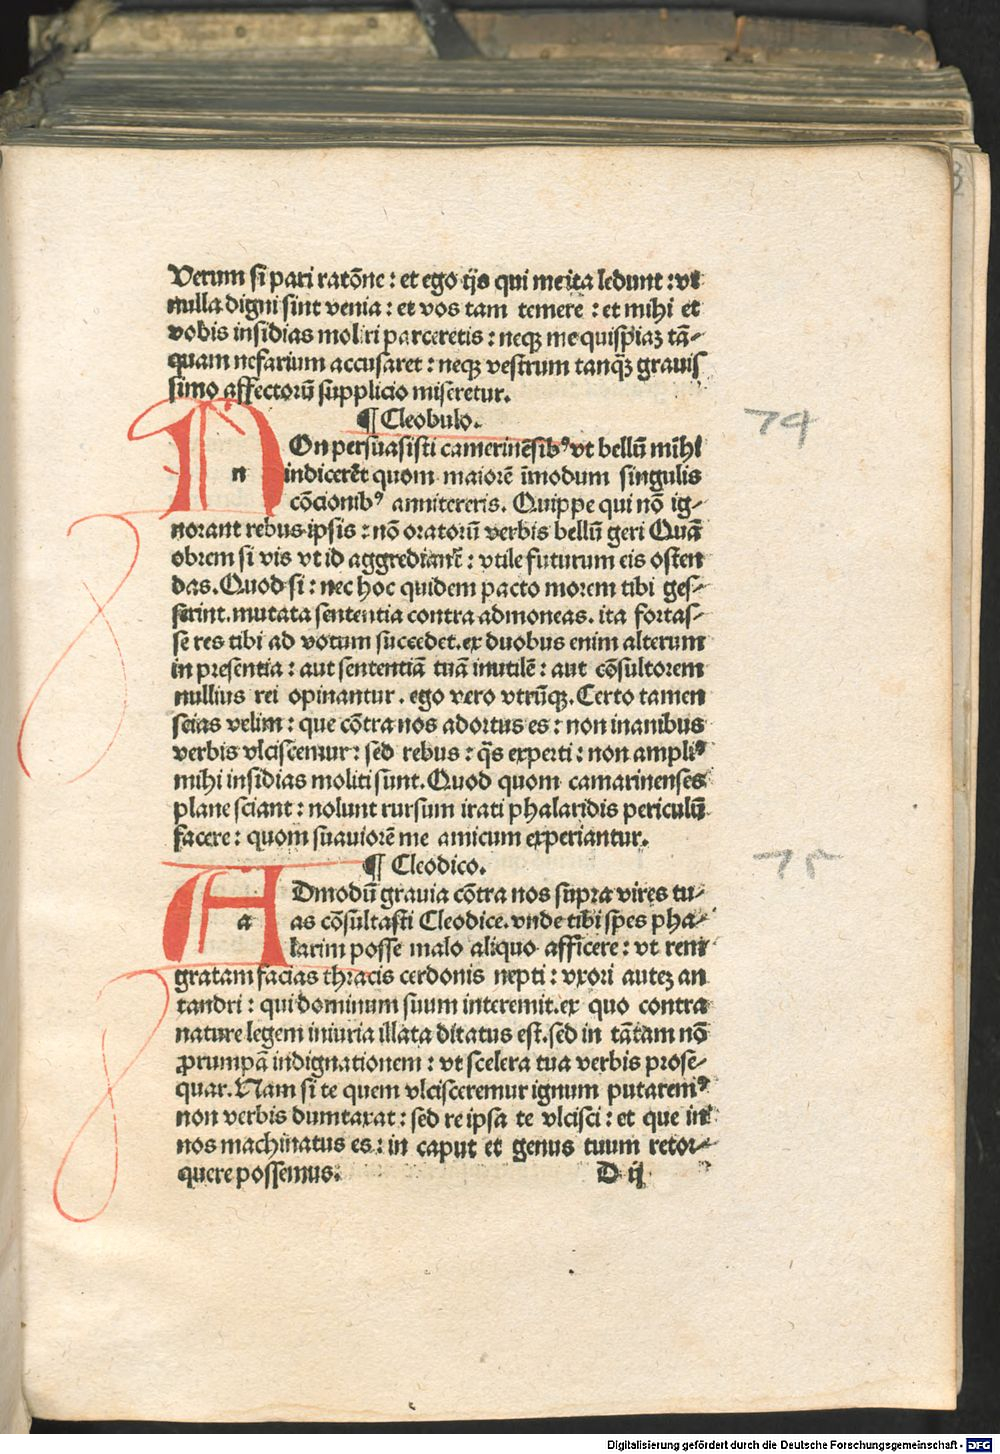 Verum si pari ratōne : et ego ijs qui me ita ledunt : vt
nulla digni sint venia : et vos tam temere : et mihi et
vobis insidias moliri parceretis : neqꝫ me quispiaꝫ tā-
quam nefarium accusaret : neqꝫ vestrum tanqꝫ̄ grauis
simo affectorū supplicio miseretur.
¶ Cleobulo.
74
NOn persuasisti camerinēsibꝰ vt bellū mihi
n indicerēt quom maiorē īmodum singulis
cōcionibꝰ annitereris. Quippe qui nō ig-
norant rebus ipsis : nō oratorū verbis bellū geri Quā
obrem si vis vt id aggrediant᷑ : vtile futurum eis osten
das. Quod si : nec hoc quidem pacto morem tibi ges-
serint. mutata sententia contra admoneas. ita fortas-
se res tibi ad votum succedet. ex duobus enim alterum
in presentia : aut sententiā tuā inutilē : aut cōsultorem
nullius rei opinantur . ego vero vtrūqꝫ. Certo tamen
scias velim : que cōtra nos adortus es : non inanibus
verbis vlciscemur : sed rebus : q̄s experti : non ampliꝰ
mihi insidias moliti sunt. Quod quom camarinenses
plane sciant : nolunt rursum irati phalaridis periculū
facere : quom suauiorē me amicum experiantur.
¶ Cleodico.
75
ADmodū grauia cōtra nos supra vires tu-
a as cōsultasti Cleodice. vnde tibi spes pha-
larim posse malo aliquo afficere : vt rem
gratam facias thracis cerdonis nepti : vxori auteꝫ an
tandri : qui dominum suum interemit. ex quo contra
nature legem iniuria illata ditatus est. sed in tātam nō
ꝓrumpā indignationem : vt scelera tua verbis prose-
quar. Nam si te quem vlcisceremur ignum putaremꝰ
non verbis dumtaxat : sed re ipsa te vlcisci : et que in
nos machinatus es : in caput et genus tuum retor-
quere possemus.
D ij
Digitalisierung gefördert durch die Deutsche Forschungsgemeinschaft - DFG